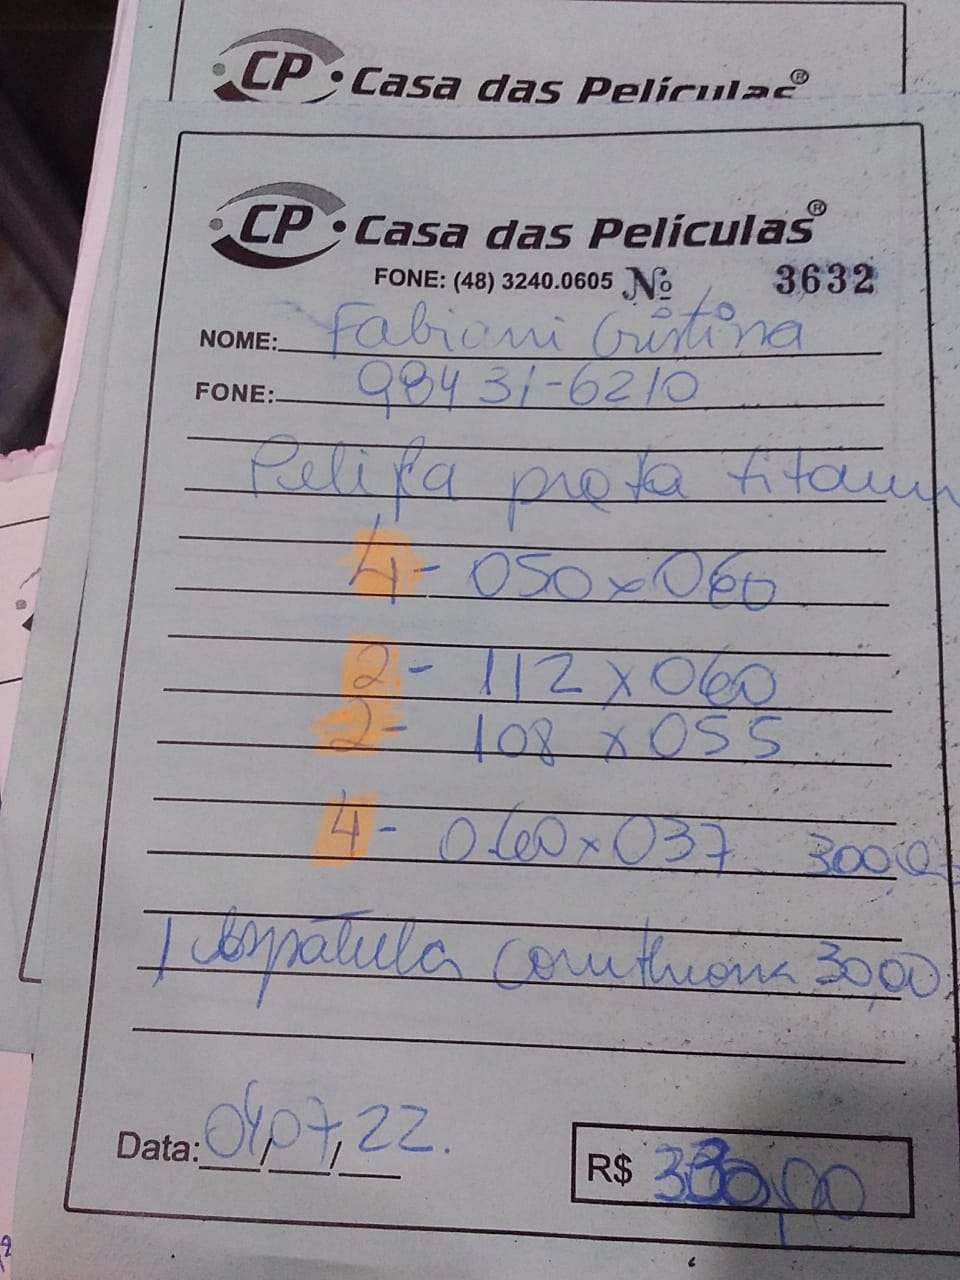 CP Casa das Películas®
CP Casa das Películas®
FONE: (48) 3240.0605 Nº 3632
NOME: Fabiani Cristina
FONE: 98431-6210
preta
4 - 050 x 060
2 - 112 x 060
2 - 108 x 055
4 - 060 x 037 300,0
1 espátula 30,00
Data: 04/07/22.
R$ 330,00